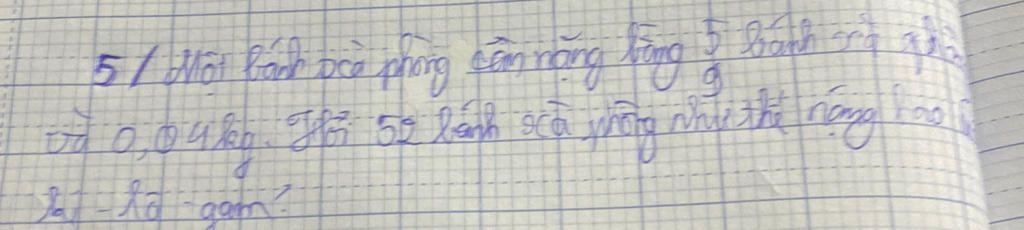 5/ Một bánh xà phòng cân nặng bằng 5/9 bánh xà phòng
và 0,04kg. Hỏi 52 bánh xà phòng như thế nặng bao
ki-lô-gam?